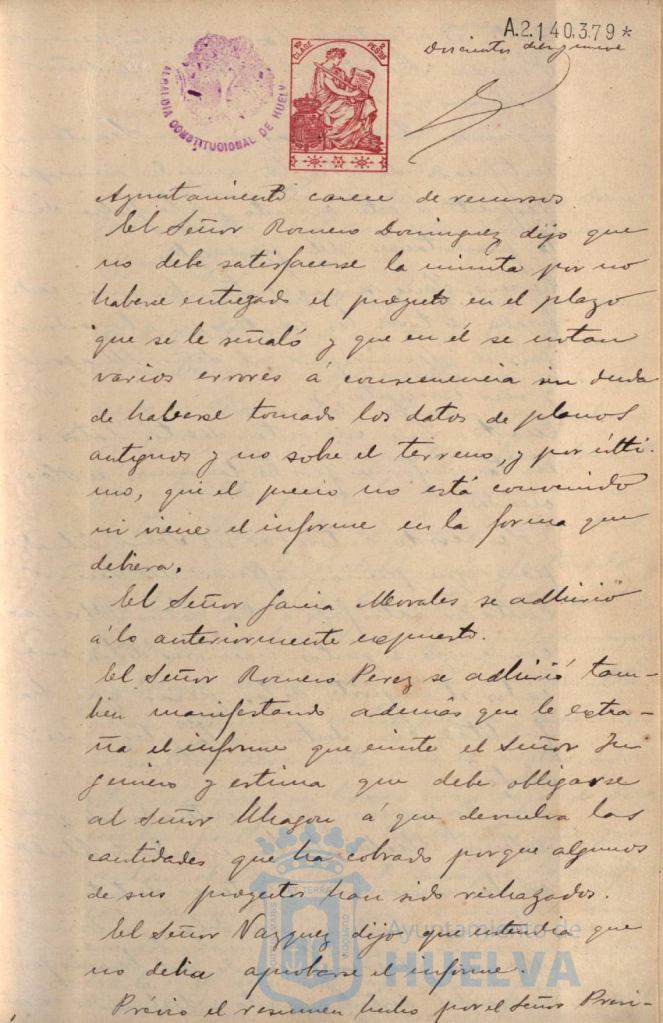 A.2.140.379*
Doscientos diez y nueve
ALCALDIA CONSTITUCIONAL DE HUELVA
10ª CLASE 2 PESTAS
Ayuntamiento carece de recursos
El Señor Romero Dominguez dijo que
no debe satisfacerse la minuta por no
haberse entregado el proyecto en el plazo
que se le señaló y que en él se notan
varios errores á consecuencia sin duda
de haberse tomado los datos de planos
antiguos y no sobre el terreno, y por últi-
mo, que el precio no está convenido
ni viene el informe en la forma que
debiera.
El Señor Garcia Morales se adhirió
á lo anteriormente expuesto.
El Señor Romero Perez se adhirió tam-
bien manifestando además que le extra-
ña el informe que emite el Señor In
geniero y estima que debe obligarse
al Señor Uhagon á que devuelva las
cantidades que ha cobrado porque algunos
de sus proyectos han sido rechazados.
El Señor Vazquez dijo que entendia que
no debia aprobarse el informe.
Ayuntamiento de
HUELVA
Prévio el resumen hecho por el Señor Presi-